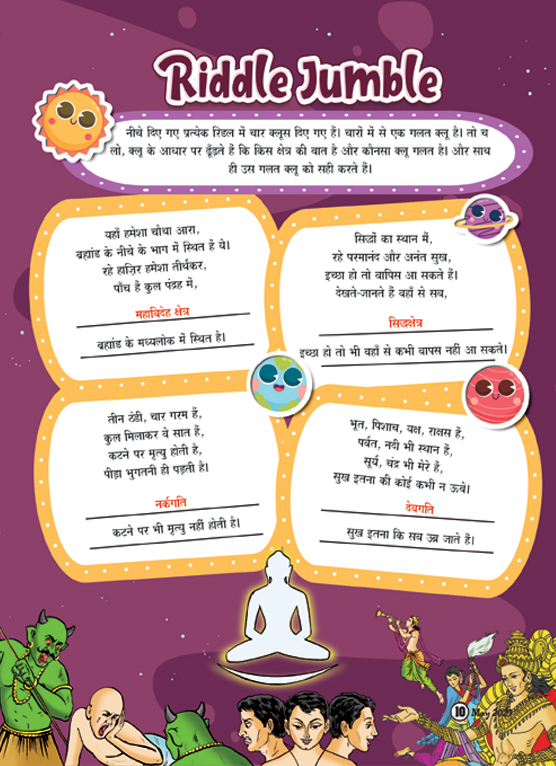 Riddle Jumble
नीचे दिए गए प्रत्येक रिडल में चार क्लूस दिए गए हैं। चारों में से एक गलत क्लू है। तो च
लो, क्लू के आधार पर ढूँढ़ते हैं कि किस क्षेत्र की बात है और कौनसा क्लू गलत है। और साथ
ही उस गलत क्लू को सही करते हैं।
यहाँ हमेशा चौथा आरा,
ब्रह्मांड के नीचे के भाग में स्थित है ये।
रहे हाज़िर हमेशा तीर्थंकर,
पाँच है कुल पंद्रह में,
महाविदेह क्षेत्र
ब्रह्मांड के मध्यलोक में स्थित है।
सिद्धों का स्थान मैं,
रहे परमानंद और अनंत सुख,
इच्छा हो तो वापिस आ सकते हैं।
देखते-जानते हैं वहाँ से सब,
सिद्धक्षेत्र
इच्छा हो तो भी वहाँ से कभी वापस नहीं आ सकते।
तीन ठंडी, चार गरम हैं,
कुल मिलाकर वे सात हैं,
कटने पर मृत्यु होती है,
पीड़ा भुगतनी ही पड़ती है।
नर्कगति
कटने पर भी मृत्यु नहीं होती है।
भूत, पिशाच, यक्ष, राक्षस हैं,
पर्वत, नदी भी स्थान हैं,
सूर्य, चंद्र भी मेरे हैं,
सुख इतना की कोई कभी न ऊबे।
देवगति
सुख इतना कि सब उब जाते हैं।
10 May